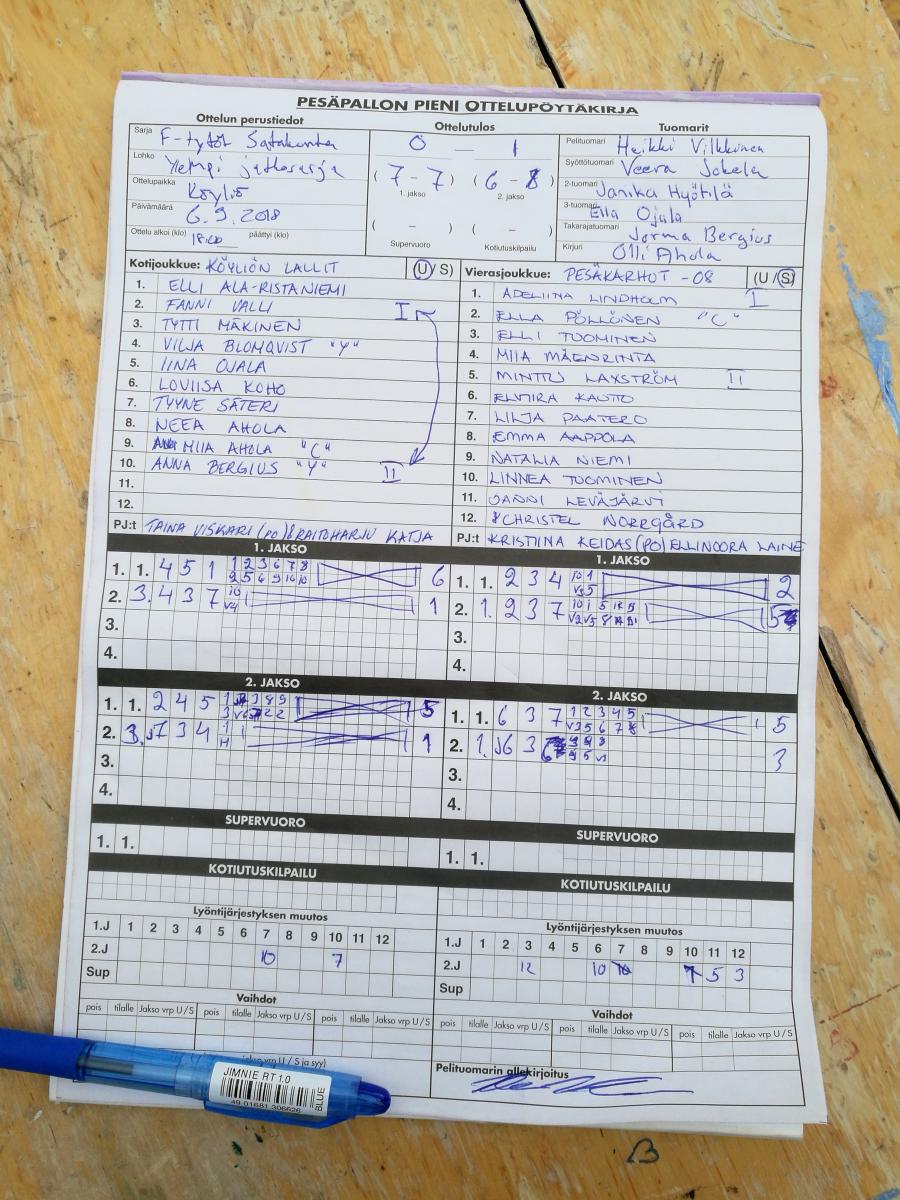 PESÄPALLON PIENI OTTELUPÖYTÄKIRJA
Ottelun perustiedot
Sarja F-tytöt Satakunta
Lohko Ylempi jatkosarja
Ottelupaikka Köyliö
Päivämäärä 6.9.2018
Ottelu alkoi (klo) 18:00 päättyi (klo)
Ottelutulos
0 — 1
(7 - 7) (6 - 8)
1. jakso 2. jakso
( - ) ( - )
Supervuoro Kotiutuskilpailu
Tuomarit
Pelituomari Heikki Vilkkinen
Syöttötuomari Veera Jokela
2-tuomari Janika Hyötilä
3-tuomari Ella Ojala
Takarajatuomari Jorma Bergius
Kirjuri Olli Ahola
Kotijoukkue: KÖYLIÖN LALLIT (U/S)
1. ELLI ALA-RISTANIEMI
2. FANNI VALLI I
3. TYTTI MÄKINEN
4. VILJA BLOMQVIST "Y"
5. IINA OJALA
6. LOVIISA KOHO
7. TYYNE SÄTERI
8. NEEA AHOLA
9. MIIA AHOLA "C"
10. ANNA BERGIUS "Y" II
11.
12.
PJ:t TAINA VISKARI (PO) & RAITOHARJU KATJA
Vierasjoukkue: PESÄKARHUT -08 (U/S)
1. ADELIINA LINDHOLM I
2. ELLA PÖLLÖNEN "C"
3. ELLI TUOMINEN
4. MIIA MÄENRINTA
5. MINTTU LAXSTRÖM II
6. ELMIRA KAUTO
7. LILJA PAATERO
8. EMMA AAPPOLA
9. NATALIA NIEMI
10. LINNEA TUOMINEN
11. JANNI LEVÄJÄRVI
12. CHRISTEL NORRGÅRD
PJ:t KRISTIINA KEIDAS (PO) ELLINOORA LAINE
1. JAKSO
1. 1. 4 5 1 1 2 3 6 7 8 6
2 5 6 9 10 10
2. 3. 4 3 7 10 1
V4
3.
4.
1. JAKSO
1. 1. 2 3 4 10 1 2
V3 5
2. 1. 2 3 7 5
3.
4.
2. JAKSO
1. 1. 2 4 5 5
2. 3. 7 3 4 1 1
H
3.
4.
2. JAKSO
1. 1. 6 3 7 1 2 3 4 5 5
2. 1. 6 3 3
3.
4.
SUPERVUORO
1. 1.
SUPERVUORO
1. 1.
KOTIUTUSKILPAILU
KOTIUTUSKILPAILU
Lyöntijärjestyksen muutos
1.J 1 2 3 4 5 6 7 8 9 10 11 12
2.J 10 7
Sup
Lyöntijärjestyksen muutos
1.J 1 2 3 4 5 6 7 8 9 10 11 12
2.J 12 10 5 3
Sup
Vaihdot
pois tilalle Jakso vrp U/S pois tilalle Jakso vrp U/S pois tilalle Jakso vrp U/S
Vaihdot
pois tilalle Jakso vrp U/S pois tilalle Jakso vrp U/S pois tilalle Jakso vrp U/S
vrp U / S ja syy)
Pelituomarin allekirjoitus
JIMNIE RT 1.0
BLUE
49 01681 306626